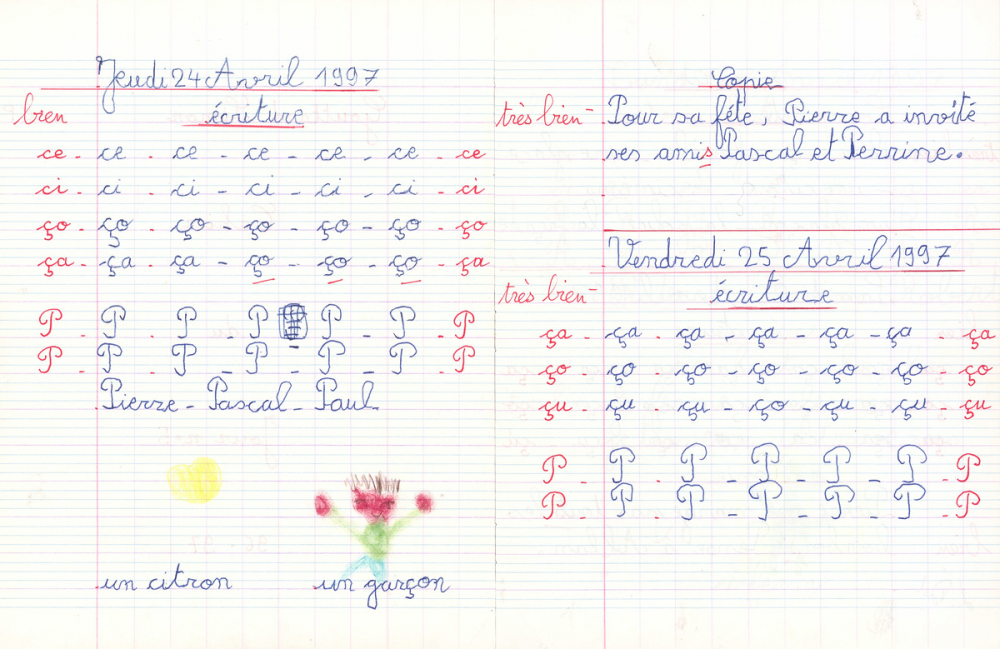 Jeudi 24 Avril 1997
bien écriture
ce - ce - ce - ce - ce - ce - ce
ci - ci - ci - ci - ci - ci - ci
ço - ço - ço - ço - ço - ço - ço
ça - ça - ça - ço - ço - ço - ça
P - P - P - P P - P - P
P - P - P - P - P - P - P
Pierre - Pascal - Paul
un citron
un garçon
Copie
très bien - Pour sa fête, Pierre a invité
ses amis Pascal et Perrine.
Vendredi 25 Avril 1997
très bien - écriture
ça - ça - ça - ça - ça - ça - ça
ço - ço - ço - ço - ço - ço - ço
çu - çu - çu - ço - çu - çu - çu
P - P - P - P - P - P - P
P - P - P - P - P - P - P